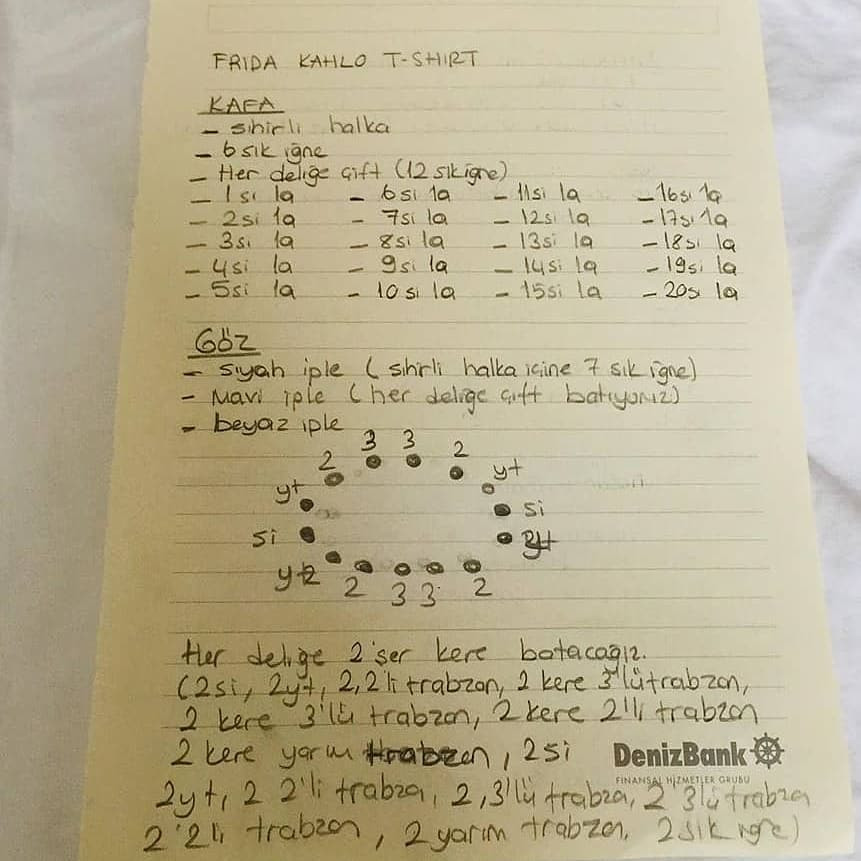 FRIDA KAHLO T-SHIRT
KAFA
- sihirli halka
- 6 sık iğne
- Her deliğe çift (12 sık iğne)
- 1si 1a - 6si 1a - 11si 1a - 16si 1a
- 2si 1a - 7si 1a - 12si 1a - 17si 1a
- 3si 1a - 8si 1a - 13si 1a - 18si 1a
- 4si 1a - 9si 1a - 14si 1a - 19si 1a
- 5si 1a - 10si 1a - 15si 1a - 20si 1a
GÖZ
- siyah iple (sihirli halka içine 7 sık iğne)
- Mavi iple (her deliğe çift batıyoruz)
- beyaz iple
2 3 3 2
yt yt
si si
yt
yt 2 3 3 2
Her deliğe 2'şer kere batacağız.
(2si, 2yt, 2, 2'li trabzon, 2 kere 3'lü trabzon,
2 kere 3'lü trabzon, 2 kere 2'li trabzon
2 kere yarım trabzon, 2si
DenizBank
FİNANSAL HİZMETLER GRUBU
2yt, 2 2'li trabza, 2, 3'lü trabza, 2 3'lü trabza
2 2'li trabzon, 2 yarım trabzon, 2 sık iğne)